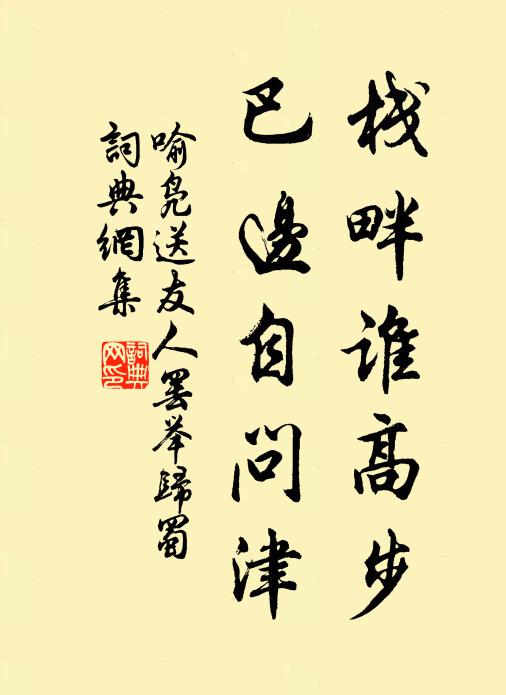 栈畔谁高步
巴邊自问津
喻凫送友人罢举歸蜀
詞典網集
詞典网印